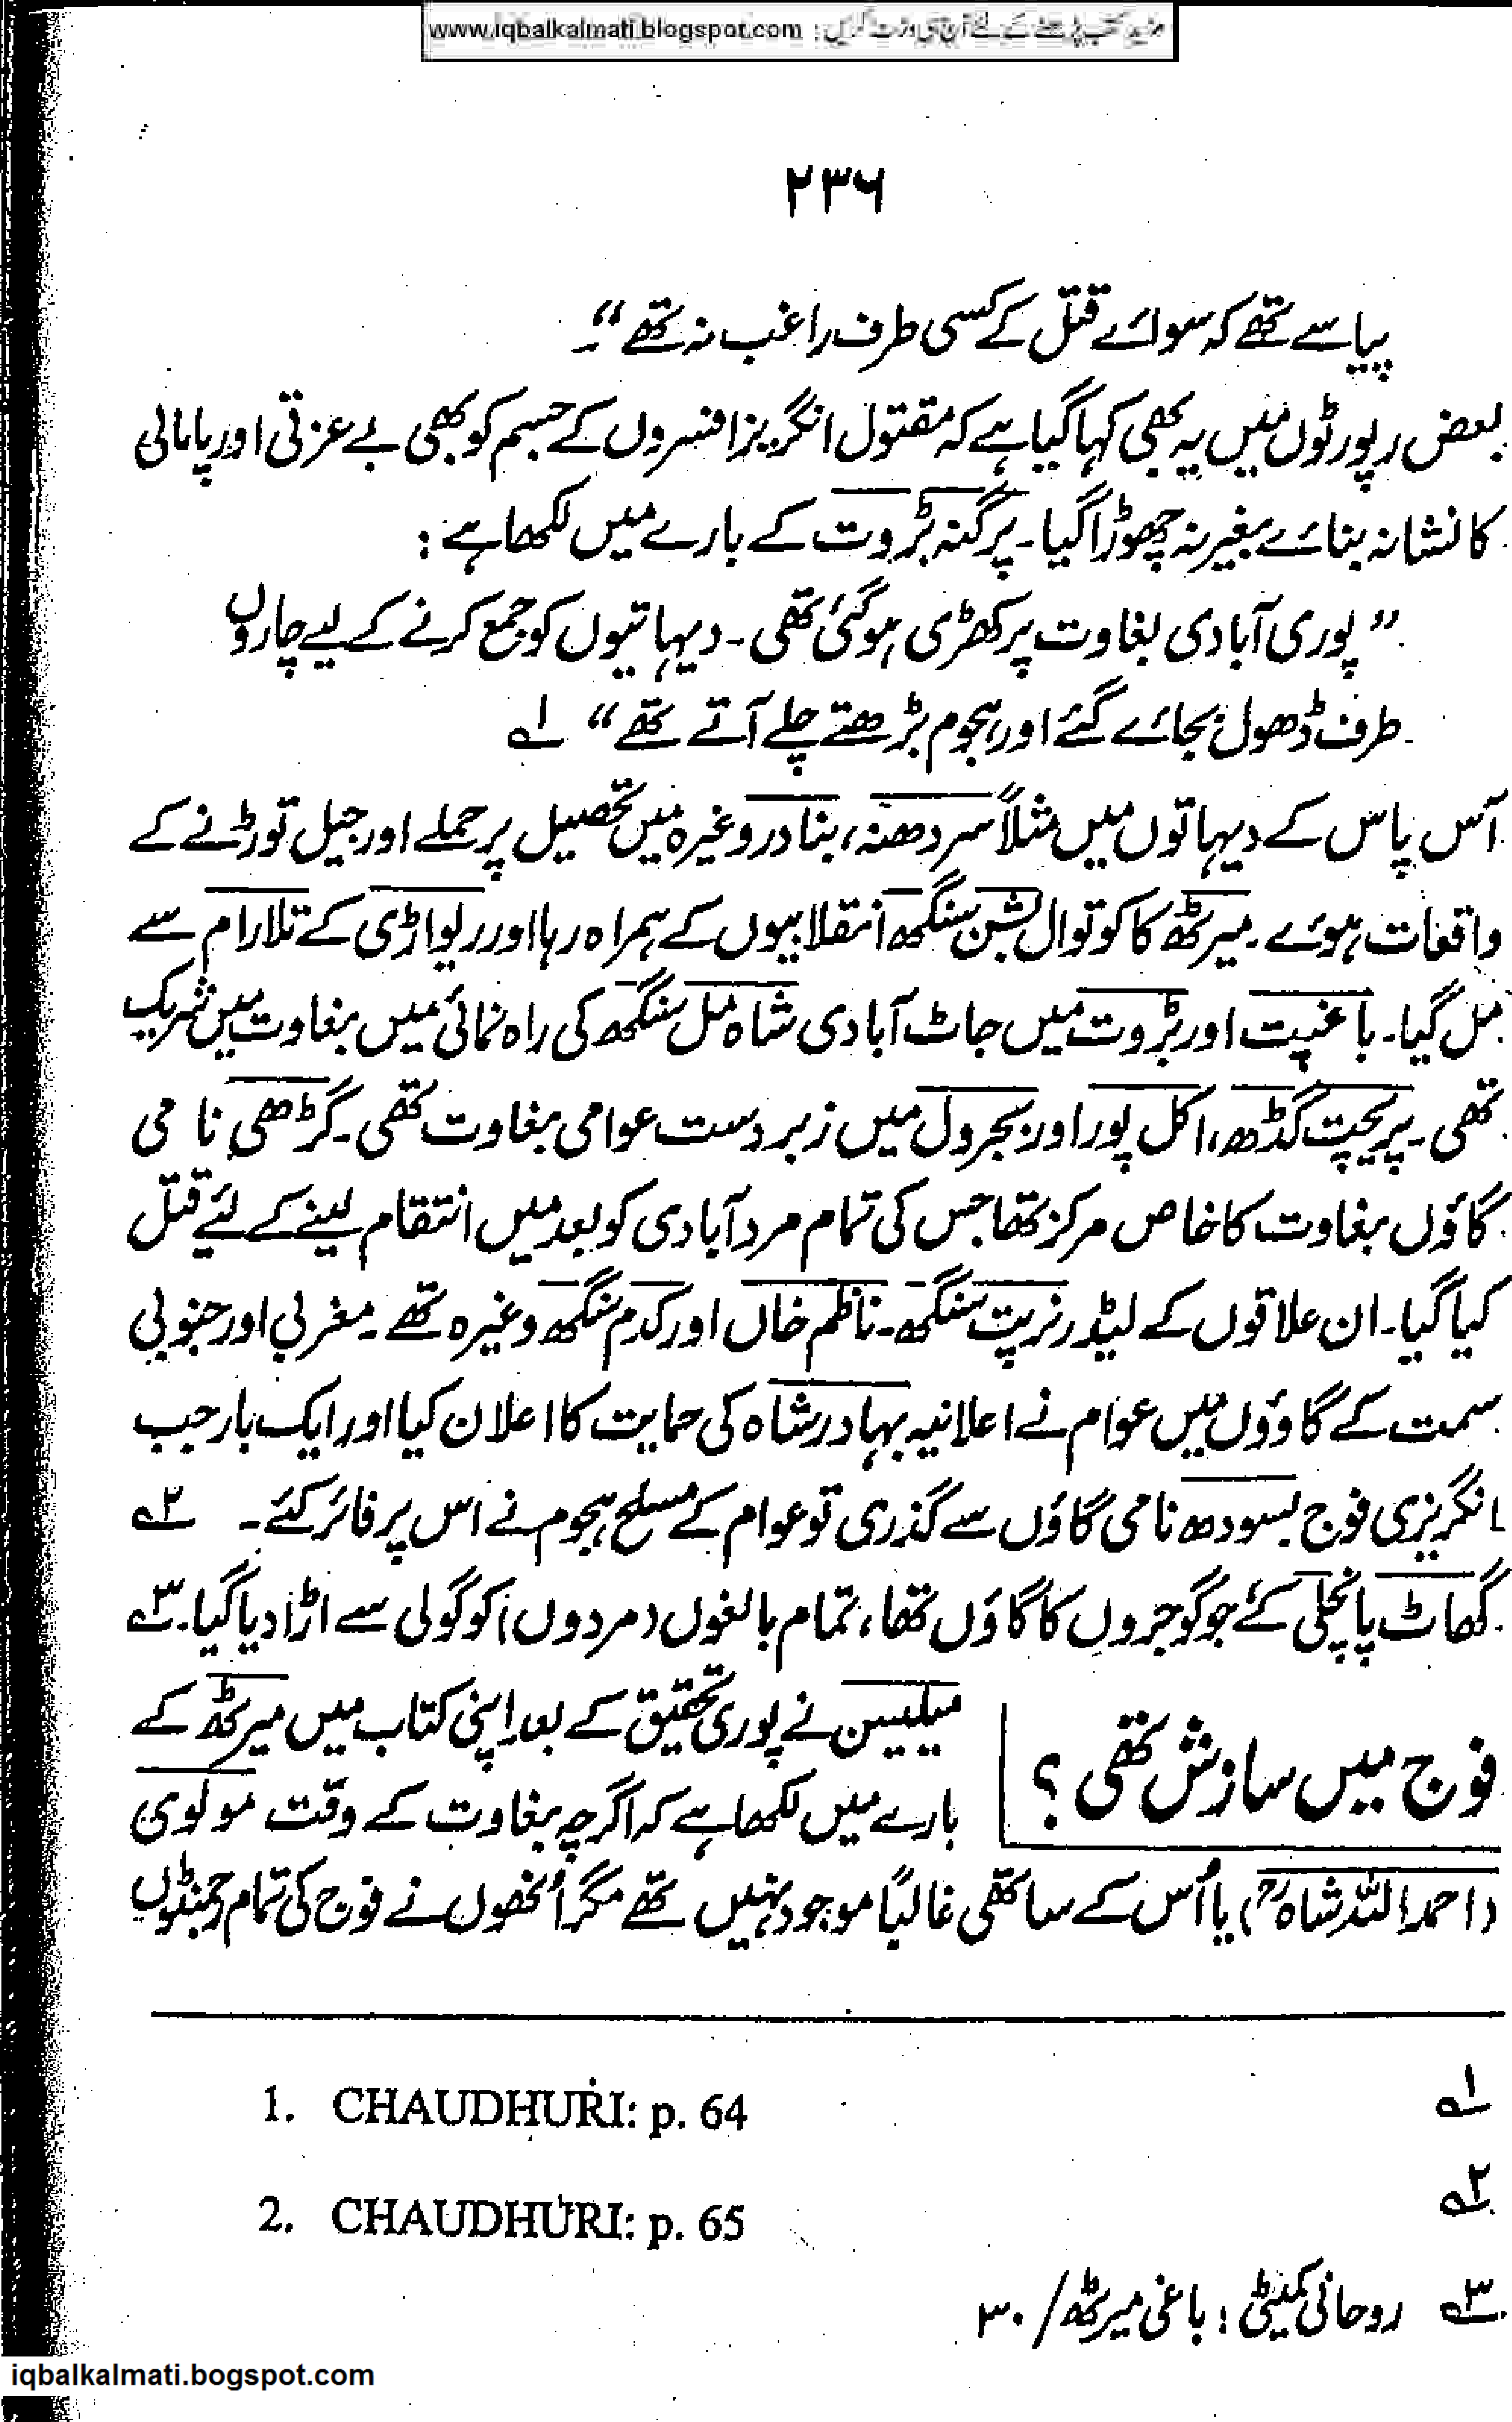 مزید کتب پڑھنے کے لئے آج ہی وزٹ کریں : www.iqbalkalmati.blogspot.com
۲۳۶
پیاسے تھے کہ سوائے قتل کے کسی طرف راغب نہ تھے“۔
بعض رپورٹوں میں یہ بھی کہا گیا ہے کہ مقتول انگریز افسروں کے جسم کو بھی بے عزتی اور پامالی
کا نشانہ بنائے بغیر نہ چھوڑا گیا۔ پرگنہ بڑوت کے بارے میں لکھا ہے :
” پوری آبادی بغاوت پر کھڑی ہو گئی تھی ۔ دیہاتیوں کو جمع کرنے کے لیے چاروں
طرف ڈھول بجائے گئے اور ہجوم بڑھتے چلے آتے تھے“ ۱؎
آس پاس کے دیہاتوں میں مثلاً سردھنہ، بنادر وغیرہ میں تحصیل پر حملے اور جیل توڑنے کے
واقعات ہوئے ۔ میرٹھ کا کوتوال بشن سنگھ انقلابیوں کے ہمراہ رہا اور ریواڑی کے تلارام سے
مل گیا۔ باغپت اور بڑوت میں جاٹ آبادی شاہ مل سنگھ کی راہ نمائی میں بغاوت میں شریک
تھی ۔ پریچپت گڈھ، اکل پور اور بجرول میں زبردست عوامی بغاوت تھی ۔ گڑھی نامی
گاؤں بغاوت کا خاص مرکز تھا جس کی تمام مرد آبادی کو بعد میں انتقام لینے کے لئے قتل
کیا گیا۔ ان علاقوں کے لیڈر نرپت سنگھ ۔ ناظم خاں اور کدم سنگھ وغیرہ تھے ۔ مغربی اور جنوبی
سمت کے گاوؤں میں عوام نے اعلانیہ بہادر شاہ کی حمایت کا اعلان کیا اور ایک بار جب
انگریزی فوج بسودھ نامی گاؤں سے گذری تو عوام کے مسلح ہجوم نے اس پر فائر کئے ۔ ۲؎
گھاٹ پانچلی کے جو گوجروں کا گاؤں تھا، تمام بالغوں (مردوں) کو گولی سے اڑا دیا گیا۔ ۳؎
فوج میں سازش تھی ؟
میلیسن نے پوری تحقیق کے بعد اپنی کتاب میں میرٹھ کے
بارے میں لکھا ہے کہ اگرچہ بغاوت کے وقت مولوی
(احمد اللہ شاہؒ) یا اُس کے ساتھی غالباً موجود نہیں تھے مگر اُنھوں نے فوج کی تمام رجمنٹوں
۱؎ 1. CHAUDHURI: p. 64
۲؎ 2. CHAUDHURI: p. 65
۳؎ روحانی کمیٹی : باغی میرٹھ / ۳۰
iqbalkalmati.bogspot.com